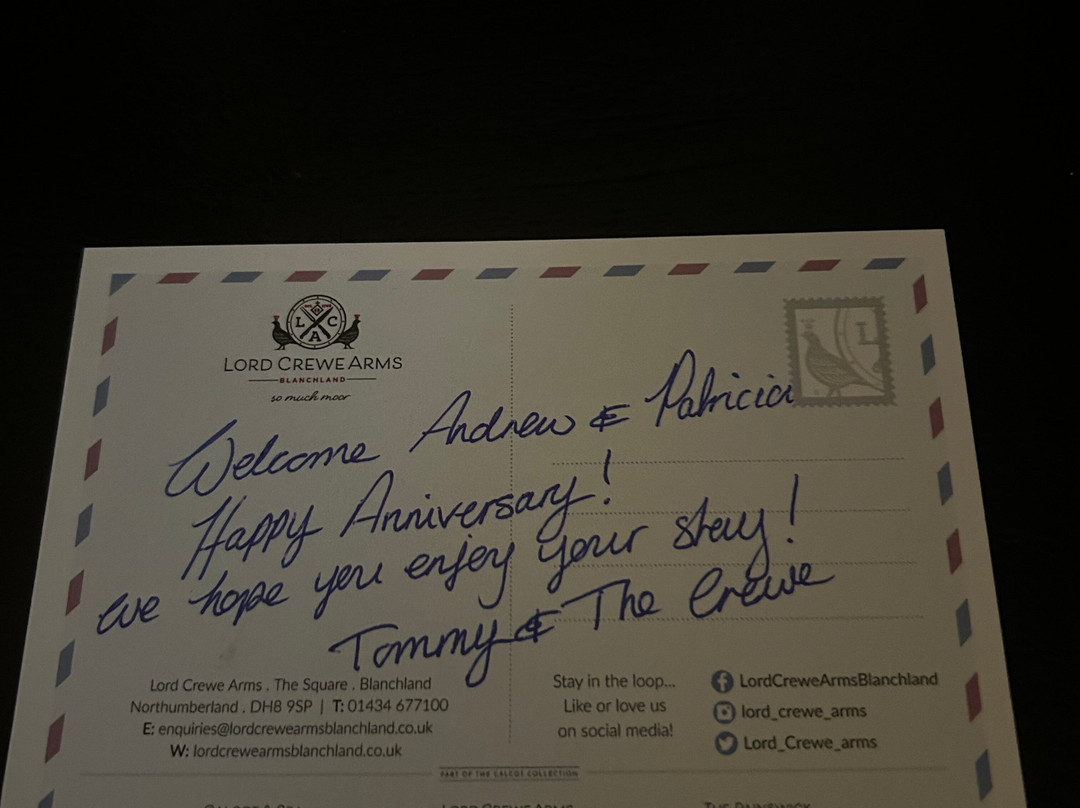 L A C
LORD CREWE ARMS
BLANCHLAND
so much moor
L
Welcome Andrew & Patricia
Happy Anniversary!
we hope you enjoy your stay!
Tommy & The Crewe
Lord Crewe Arms . The Square . Blanchland
Northumberland . DH8 9SP | T: 01434 677100
E: enquiries@lordcrewearmsblanchland.co.uk
W: lordcrewearmsblanchland.co.uk
Stay in the loop...
Like or love us
on social media!
LordCreweArmsBlanchland
lord_crewe_arms
Lord_Crewe_arms
PART OF THE CALCOT COLLECTION
LORD CREWE ARMS